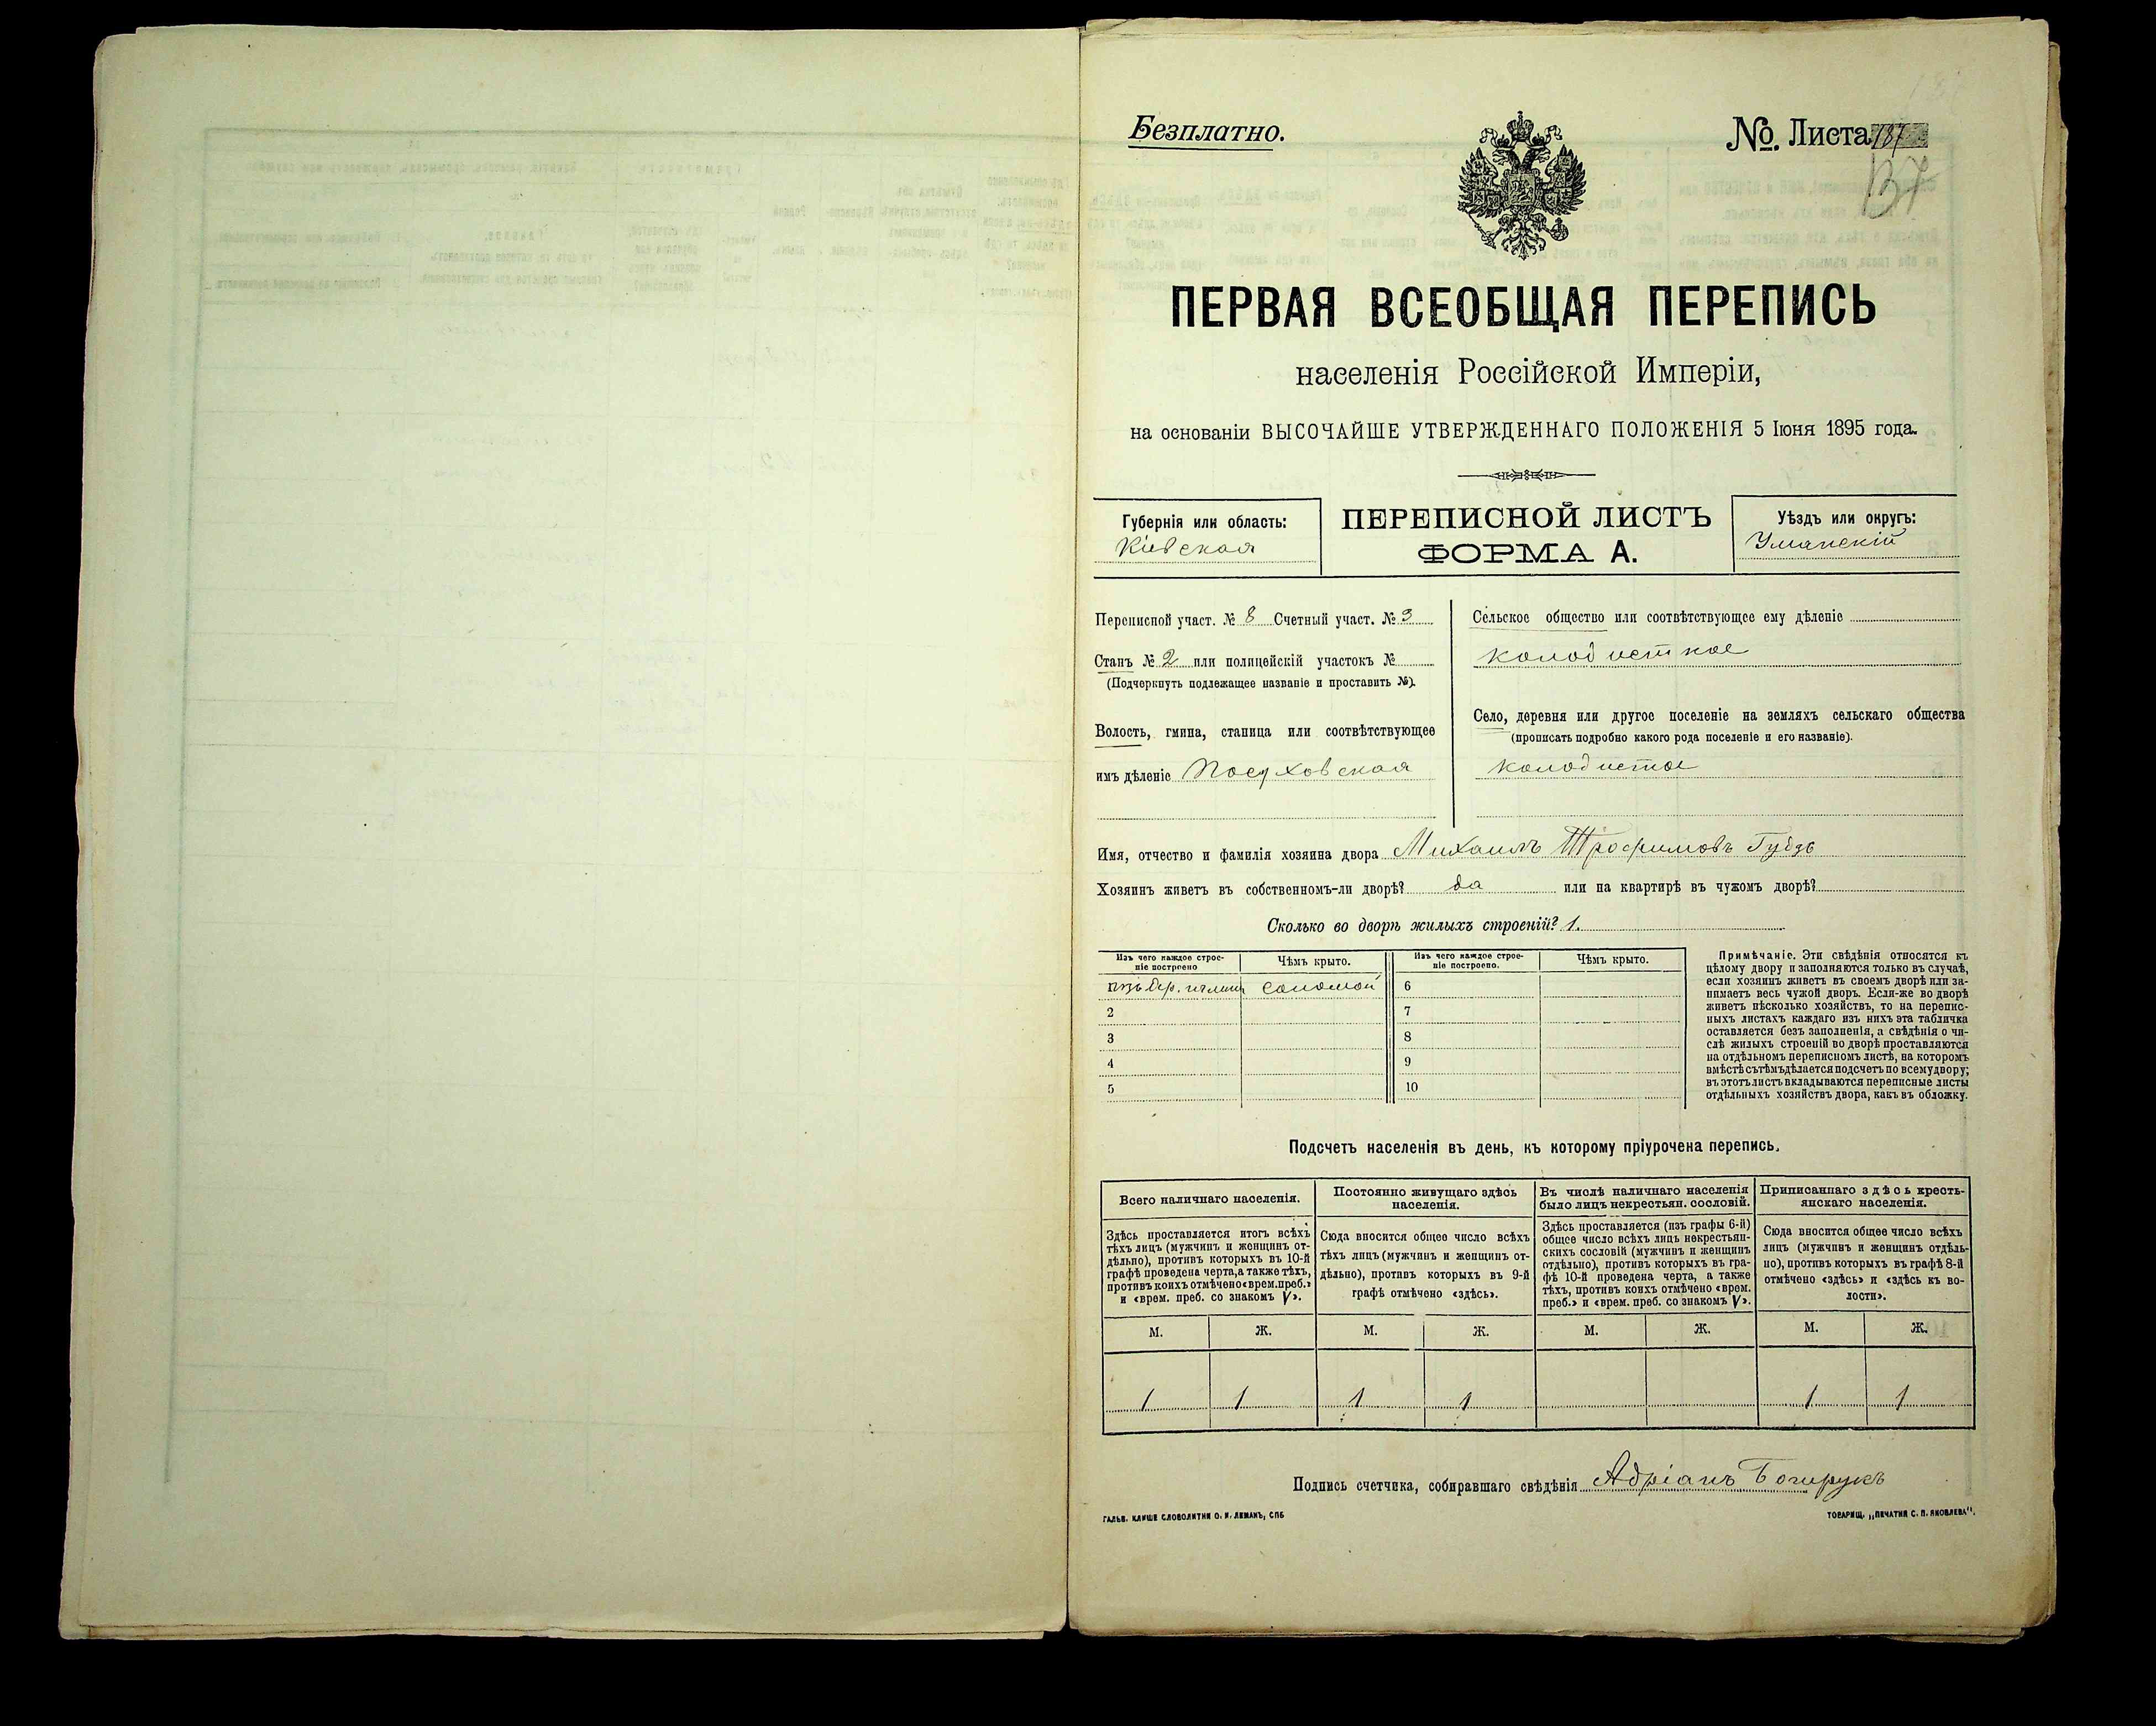 Безплатно.
№. Листа 137
137
ПЕРВАЯ ВСЕОБЩАЯ ПЕРЕПИСЬ
населенія Россійской Имперіи,
на основаніи ВЫСОЧАЙШЕ УТВЕРЖДЕННАГО ПОЛОЖЕНІЯ 5 Іюня 1895 года.
Губернія или область:
Кіевская
ПЕРЕПИСНОЙ ЛИСТЪ
ФОРМА А.
Уѣздъ или округъ:
Уманскій
Переписной участ. № 8 Счетный участ. № 3
Станъ № 2 или полицейскій участокъ №
(Подчеркнуть подлежащее названіе и проставить №).
Волость, гмина, станица или соотвѣтствующее
имъ дѣленіе Посуховская
Сельское общество или соотвѣтствующее ему дѣленіе
Колодисткое
Село, деревня или другое поселеніе на земляхъ сельскаго общества
(прописать подробно какого рода поселеніе и его названіе).
Колодистое
Имя, отчество и фамилія хозяина двора Михаилъ Трофимовъ
Хозяинъ живетъ въ собственномъ-ли дворѣ? да или на квартирѣ въ чужомъ дворѣ?
Сколько во дворѣ жилыхъ строеній? 1.
Изъ чего каждое строе-
ніе построено
Чѣмъ крыто.
Изъ чего каждое строе-
ніе построено.
Чѣмъ крыто.
изъ дер. и глины соломой 6
2 7
3 8
4 9
5 10
Примѣчаніе. Эти свѣдѣнія относятся къ
цѣлому двору и заполняются только въ случаѣ,
если хозяинъ живетъ въ своемъ дворѣ или за-
нимаетъ весь чужой дворъ. Если-же во дворѣ
живетъ нѣсколько хозяйствъ, то на перепис-
ныхъ листахъ каждаго изъ нихъ эта табличка
оставляется безъ заполненія, а свѣдѣнія о чи-
слѣ жилыхъ строеній во дворѣ проставляются
на отдѣльномъ переписномъ листѣ, на которомъ
вмѣстѣ съ тѣмъ дѣлается подсчетъ по всему двору;
въ этотъ листъ вкладываются переписные листы
отдѣльныхъ хозяйствъ двора, какъ въ обложку.
Подсчетъ населенія въ день, къ которому пріурочена перепись.
Всего наличнаго населенія.
Здѣсь проставляется итогъ всѣхъ
тѣхъ лицъ (мужчинъ и женщинъ от-
дѣльно), противъ которыхъ въ 10-й
графѣ проведена черта, а также тѣхъ,
противъ коихъ отмѣчено «врем. преб.»
и «врем. преб. со знакомъ V».
Постоянно живущаго здѣсь
населенія.
Сюда вносится общее число всѣхъ
тѣхъ лицъ (мужчинъ и женщинъ от-
дѣльно), противъ которыхъ въ 9-й
графѣ отмѣчено «здѣсь».
Въ числѣ наличнаго населенія
было лицъ некрестьян. сословій.
Здѣсь проставляется (изъ графы 6-й)
общее число всѣхъ лицъ некрестьян-
скихъ сословій (мужчинъ и женщинъ
отдѣльно), противъ которыхъ въ гра-
фѣ 10-й проведена черта, а также
тѣхъ, противъ коихъ отмѣчено «врем.
преб.» и «врем. преб. со знакомъ V».
Приписаннаго здѣсь кресть-
янскаго населенія.
Сюда вносится общее число всѣхъ
лицъ (мужчинъ и женщинъ отдѣль-
но), противъ которыхъ въ графѣ 8-й
отмѣчено «здѣсь» и «здѣсь къ во-
лости».
М. Ж. М. Ж. М. Ж. М. Ж.
1 1 1 1 1 1
Подпись счетчика, собиравшаго свѣдѣнія Адріанъ
ГАЛЬВ. КЛИШЕ СЛОВОЛИТНИ О. И. ЛЕМАНЪ, СПБ
ТОВАРИЩ. „ПЕЧАТНЯ С. П. ЯКОВЛЕВА".